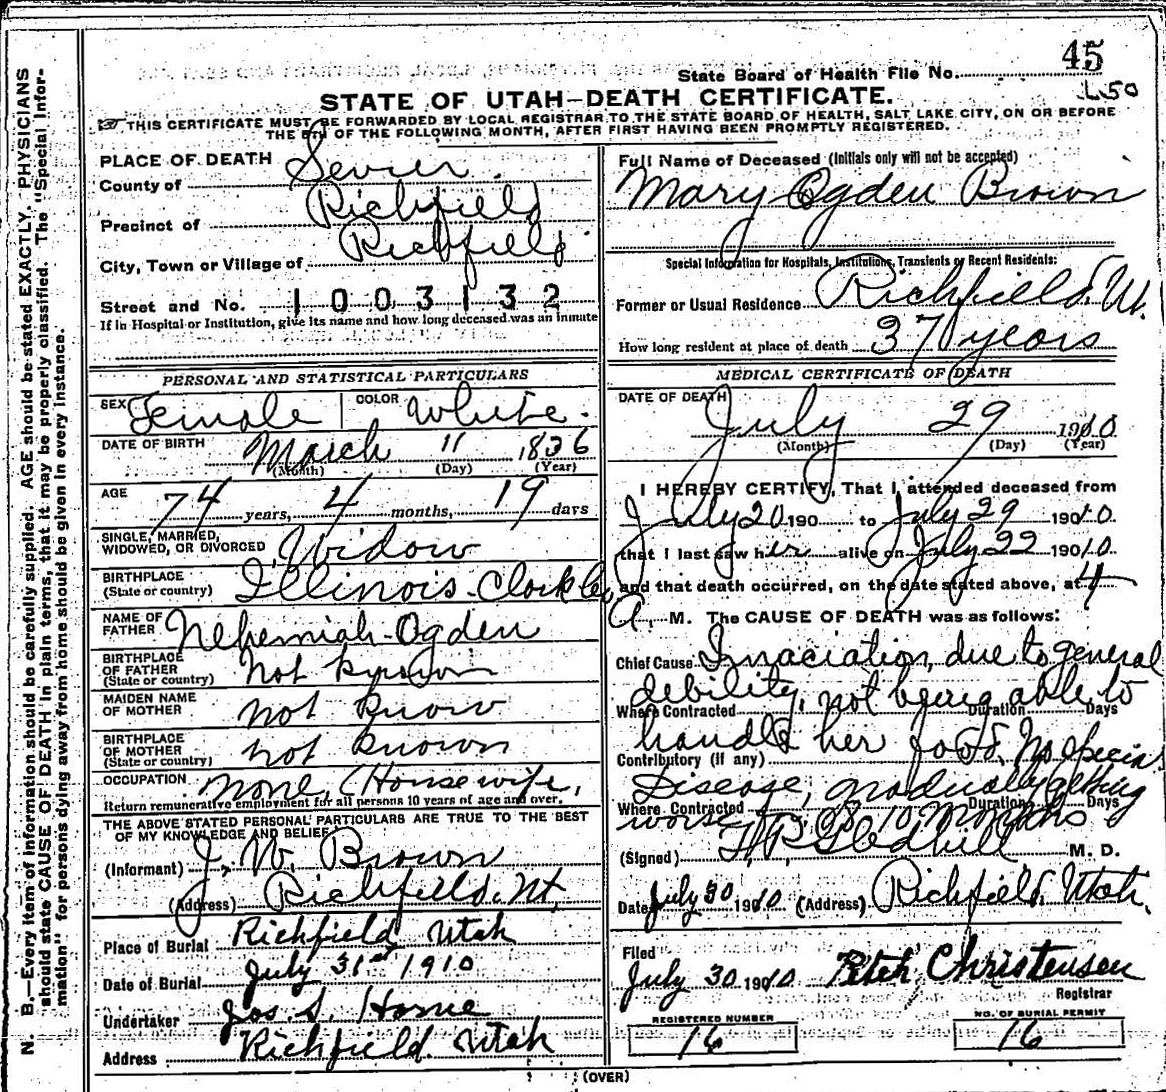 45
State Board of Health File No.
L50
STATE OF UTAH—DEATH CERTIFICATE.
THIS CERTIFICATE MUST BE FORWARDED BY LOCAL REGISTRAR TO THE STATE BOARD OF HEALTH, SALT LAKE CITY, ON OR BEFORE
THE 5TH OF THE FOLLOWING MONTH, AFTER FIRST HAVING BEEN PROMPTLY REGISTERED.
N. B.—Every item of information should be carefully supplied. AGE should be stated EXACTLY. PHYSICIANS
should state CAUSE OF DEATH in plain terms, that it may be properly classified. The "Special Infor-
mation" for persons dying away from home should be given in every instance.
PLACE OF DEATH
County of Sevier.
Precinct of Richfield
City, Town or Village of Richfield
Street and No. 1003132
If in Hospital or Institution, give its name and how long deceased was an inmate
PERSONAL AND STATISTICAL PARTICULARS
SEX Female COLOR White.
DATE OF BIRTH March 11 1836
(Month) (Day) (Year)
AGE 74 years, 4 months, 19 days
SINGLE, MARRIED,
WIDOWED, OR DIVORCED Widow
BIRTHPLACE
(State or country) Illinois-
NAME OF
FATHER Nehemiah-Ogden
BIRTHPLACE
OF FATHER
(State or country) Not known
MAIDEN NAME
OF MOTHER not know
BIRTHPLACE
OF MOTHER
(State or country) not known
OCCUPATION none, (Housewife,
Return remunerative employment for all persons 10 years of age and over.
THE ABOVE STATED PERSONAL PARTICULARS ARE TRUE TO THE BEST
OF MY KNOWLEDGE AND BELIEF
(Informant) J. W. Brown
(Address) Richfield, Ut,
Place of Burial Richfield Utah
Date of Burial July 31st 1910
Undertaker Jos. S. Horne
Address Richfield Utah
Full Name of Deceased (Initials only will not be accepted)
Mary Ogden Brown
Special Information for Hospitals, Institutions, Transients or Recent Residents:
Former or Usual Residence Richfield, Ut.
How long resident at place of death 37 years
MEDICAL CERTIFICATE OF DEATH
DATE OF DEATH
July 29 1910
(Month) (Day) (Year)
I HEREBY CERTIFY, That I attended deceased from
July 20 190 to July 29 1910
that I last saw her alive on July 22 1910
and that death occurred, on the date stated above, at 4
A. M. The CAUSE OF DEATH was as follows:
Chief Cause Imaciation, due to general
debility, not being able to
Where Contracted Duration Days
handle her food. No special
Contributory (if any)
Disease, gradually getting
Where Contracted Duration Days
worse 10 Months
(Signed) H. P. Gledhill M. D.
Date July 30 1910 (Address) Richfield, Utah.
Filed
July 30 1910 Christensen
Registrar
REGISTERED NUMBER
16
NO. OF BURIAL PERMIT
16
(OVER)